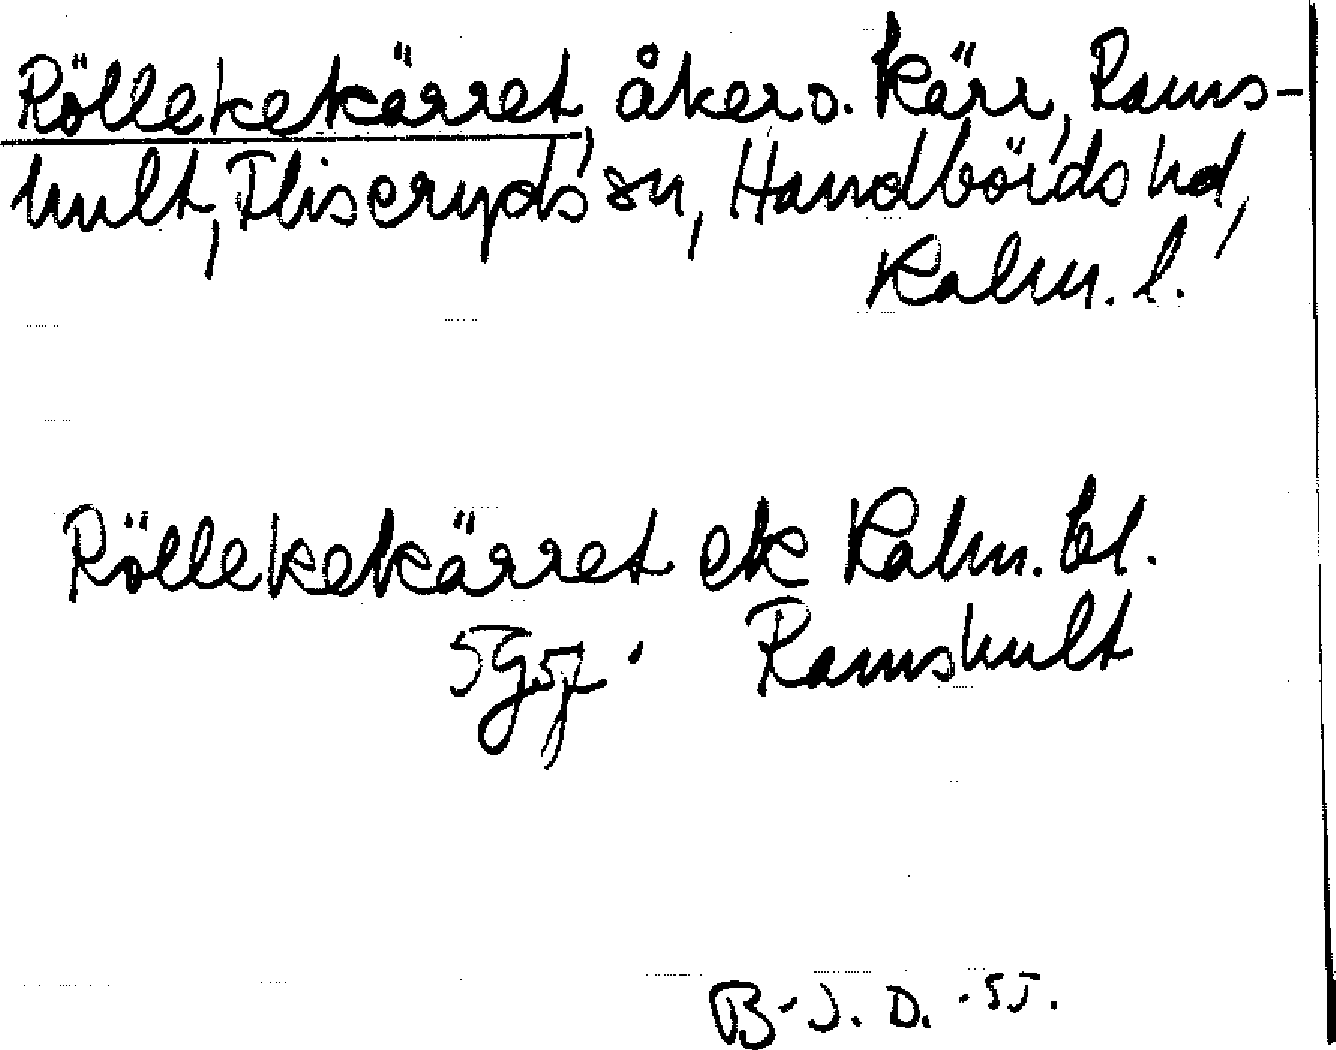 Röllekekärret, åker o. kärr, Rams-
hult, Fliseryds sn, Handbörds hd,
Kalm. l.
Röllekekärret ek Kalm. bl.
5G5f. Ramshult
B-J. D. -55.